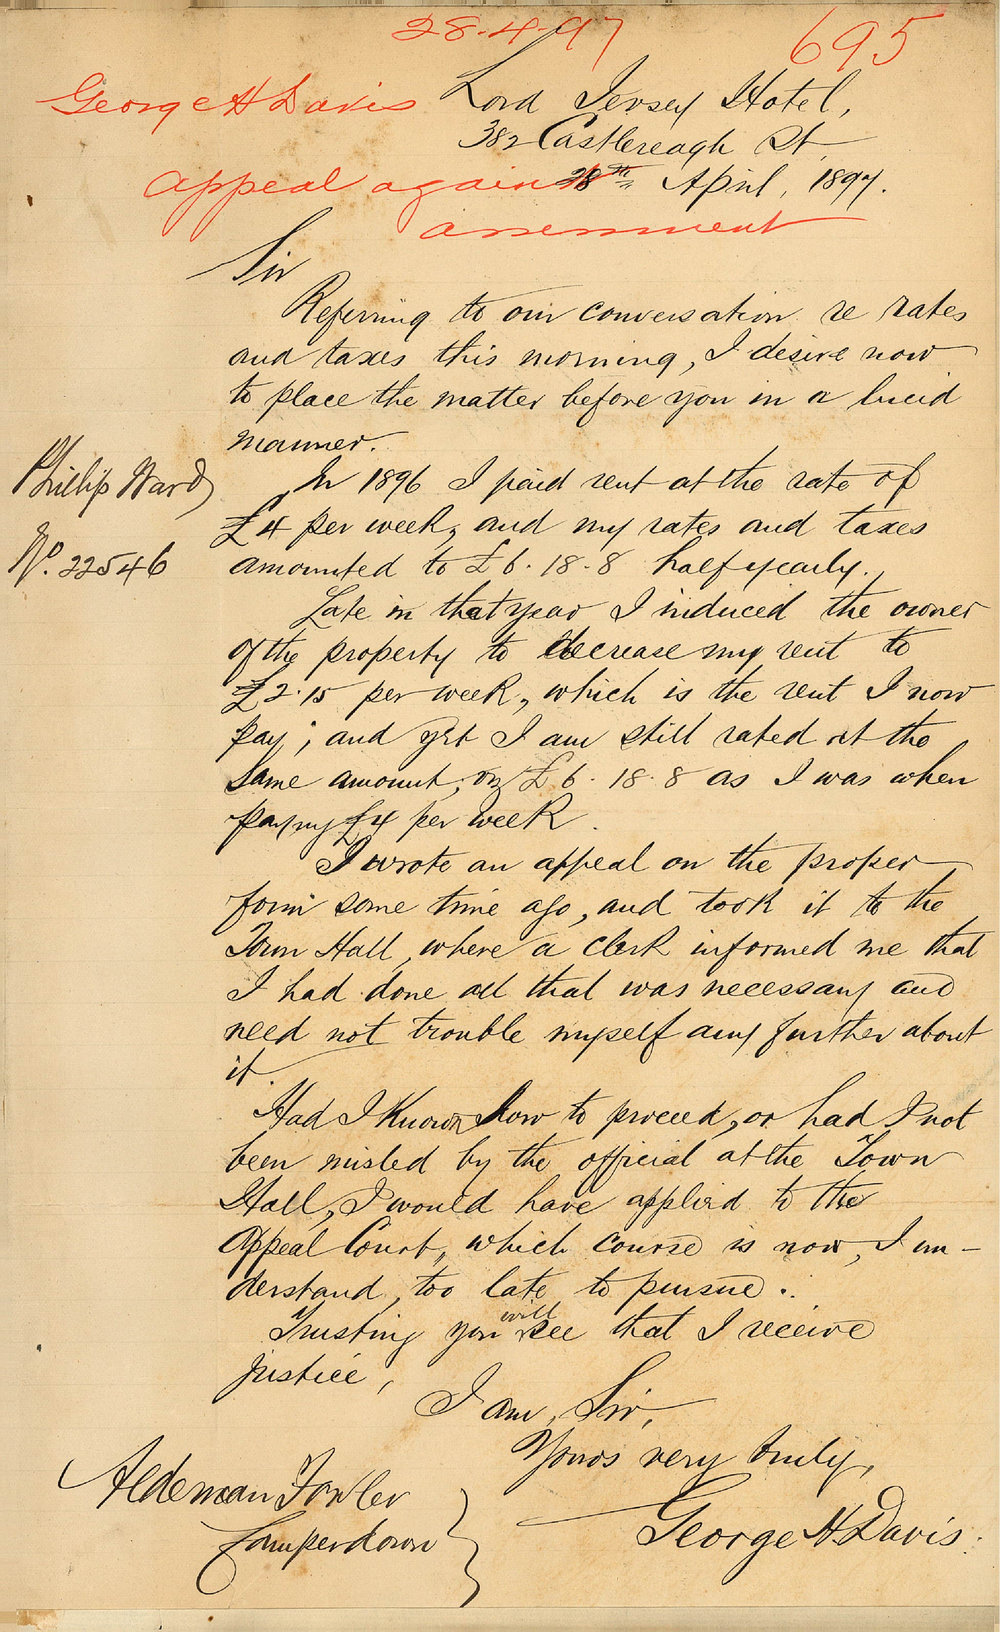 28.4.97
695
George H Davis
Lord Jersey Hotel,
382 Castlereagh St
Appeal against
28th April, 1897.
assessment
Sir
Referring to our conversation re rates
and taxes this morning, I desire now
to place the matter before you in a lucid
manner.
Phillip Ward
No. 22546
In 1896 I paid rent at the rate of
£4 per week, and my rates and taxes
amounted to £6.18.8 half yearly.
Late in that year I induced the owner
of the property to decrease my rent to
£2.15 per week, which is the rent I now
pay; and yet I am still rated at the
same amount, £6.18.8 as I was when
paying £4 per week.
I wrote an appeal on the proper
form some time ago, and took it to the
Town Hall, where a clerk informed me that
I had done all that was necessary and
need not trouble myself any further about
it.
Had I known how to proceed, or had I not
been misled by the official at the Town
Hall, I would have applied to the
Appeal Court, which course is now, I un-
derstand, too late to pursue.
Trusting you will see that I receive
justice,
I am, Sir,
Yours very truly,
George H. Davis.
Alderman Fowler
Camperdown